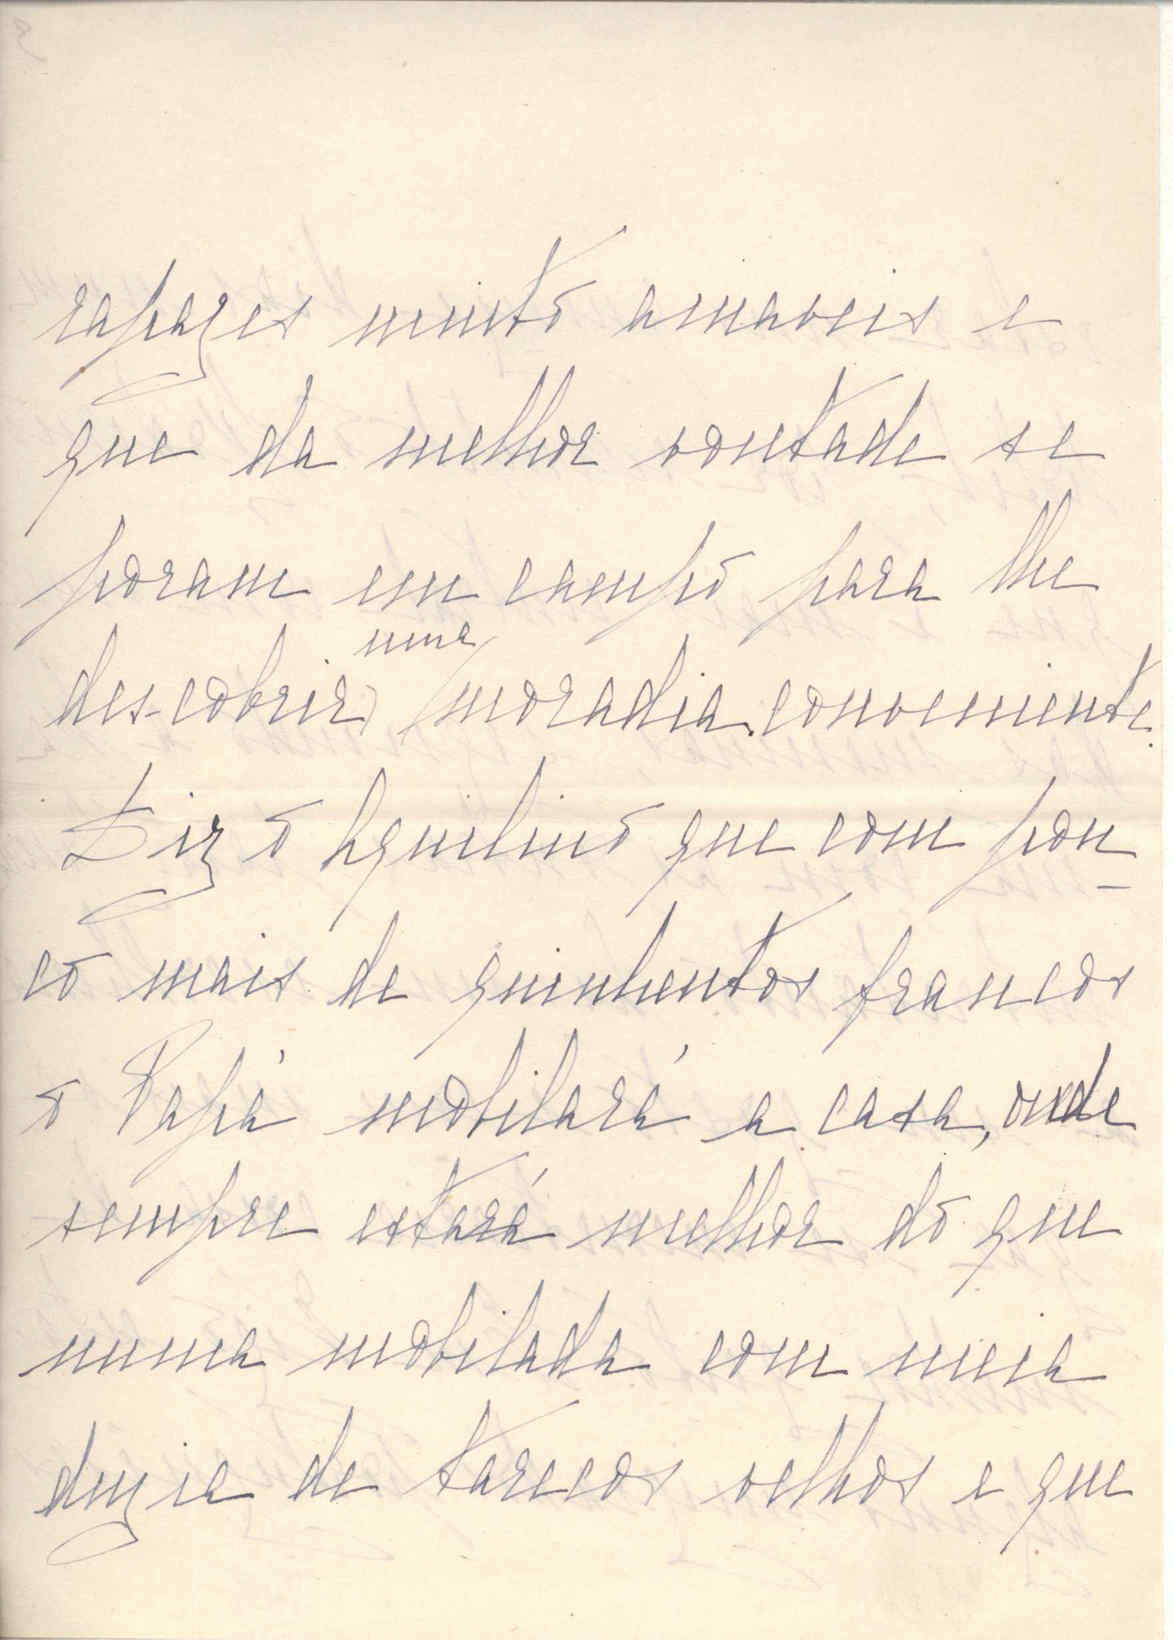 rapazes muito amaveis e
que da melhor vontade se
poram em campo para lhe
descobrir uma moradia conveniente.
Diz o Aquilino que com pou-
co mais de quinhentos francos
o Papá mobilará a casa, onde
sempre estará melhor do que
numa mobilada com meia
duzia de tarecos velhos e que